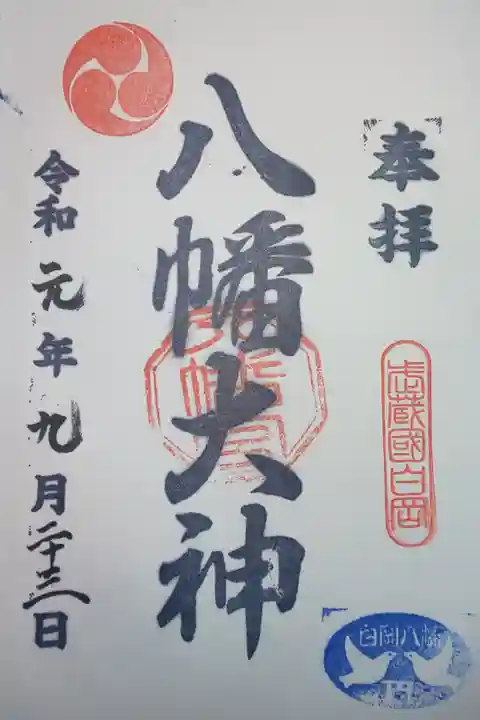 奉拝
武蔵國白岡
白岡八幡
八幡大神
令和元年九月二十三日